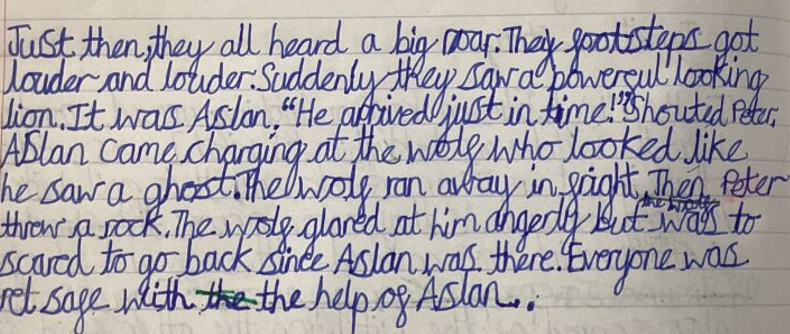 Just then, they all heard a big roar. They footsteps got
louder and louder. Suddenly they saw a powerful looking
lion. It was Aslan. "He arrived just in time!" Shouted Peter.
Aslan came charging at the wolf who looked like
he saw a ghost. The wolf ran away in fright. Then Peter
threw a rock. The wolf glared at him angerly but was to
scared to go back since Aslan was there. Everyone was
safe with the the help of Aslan...